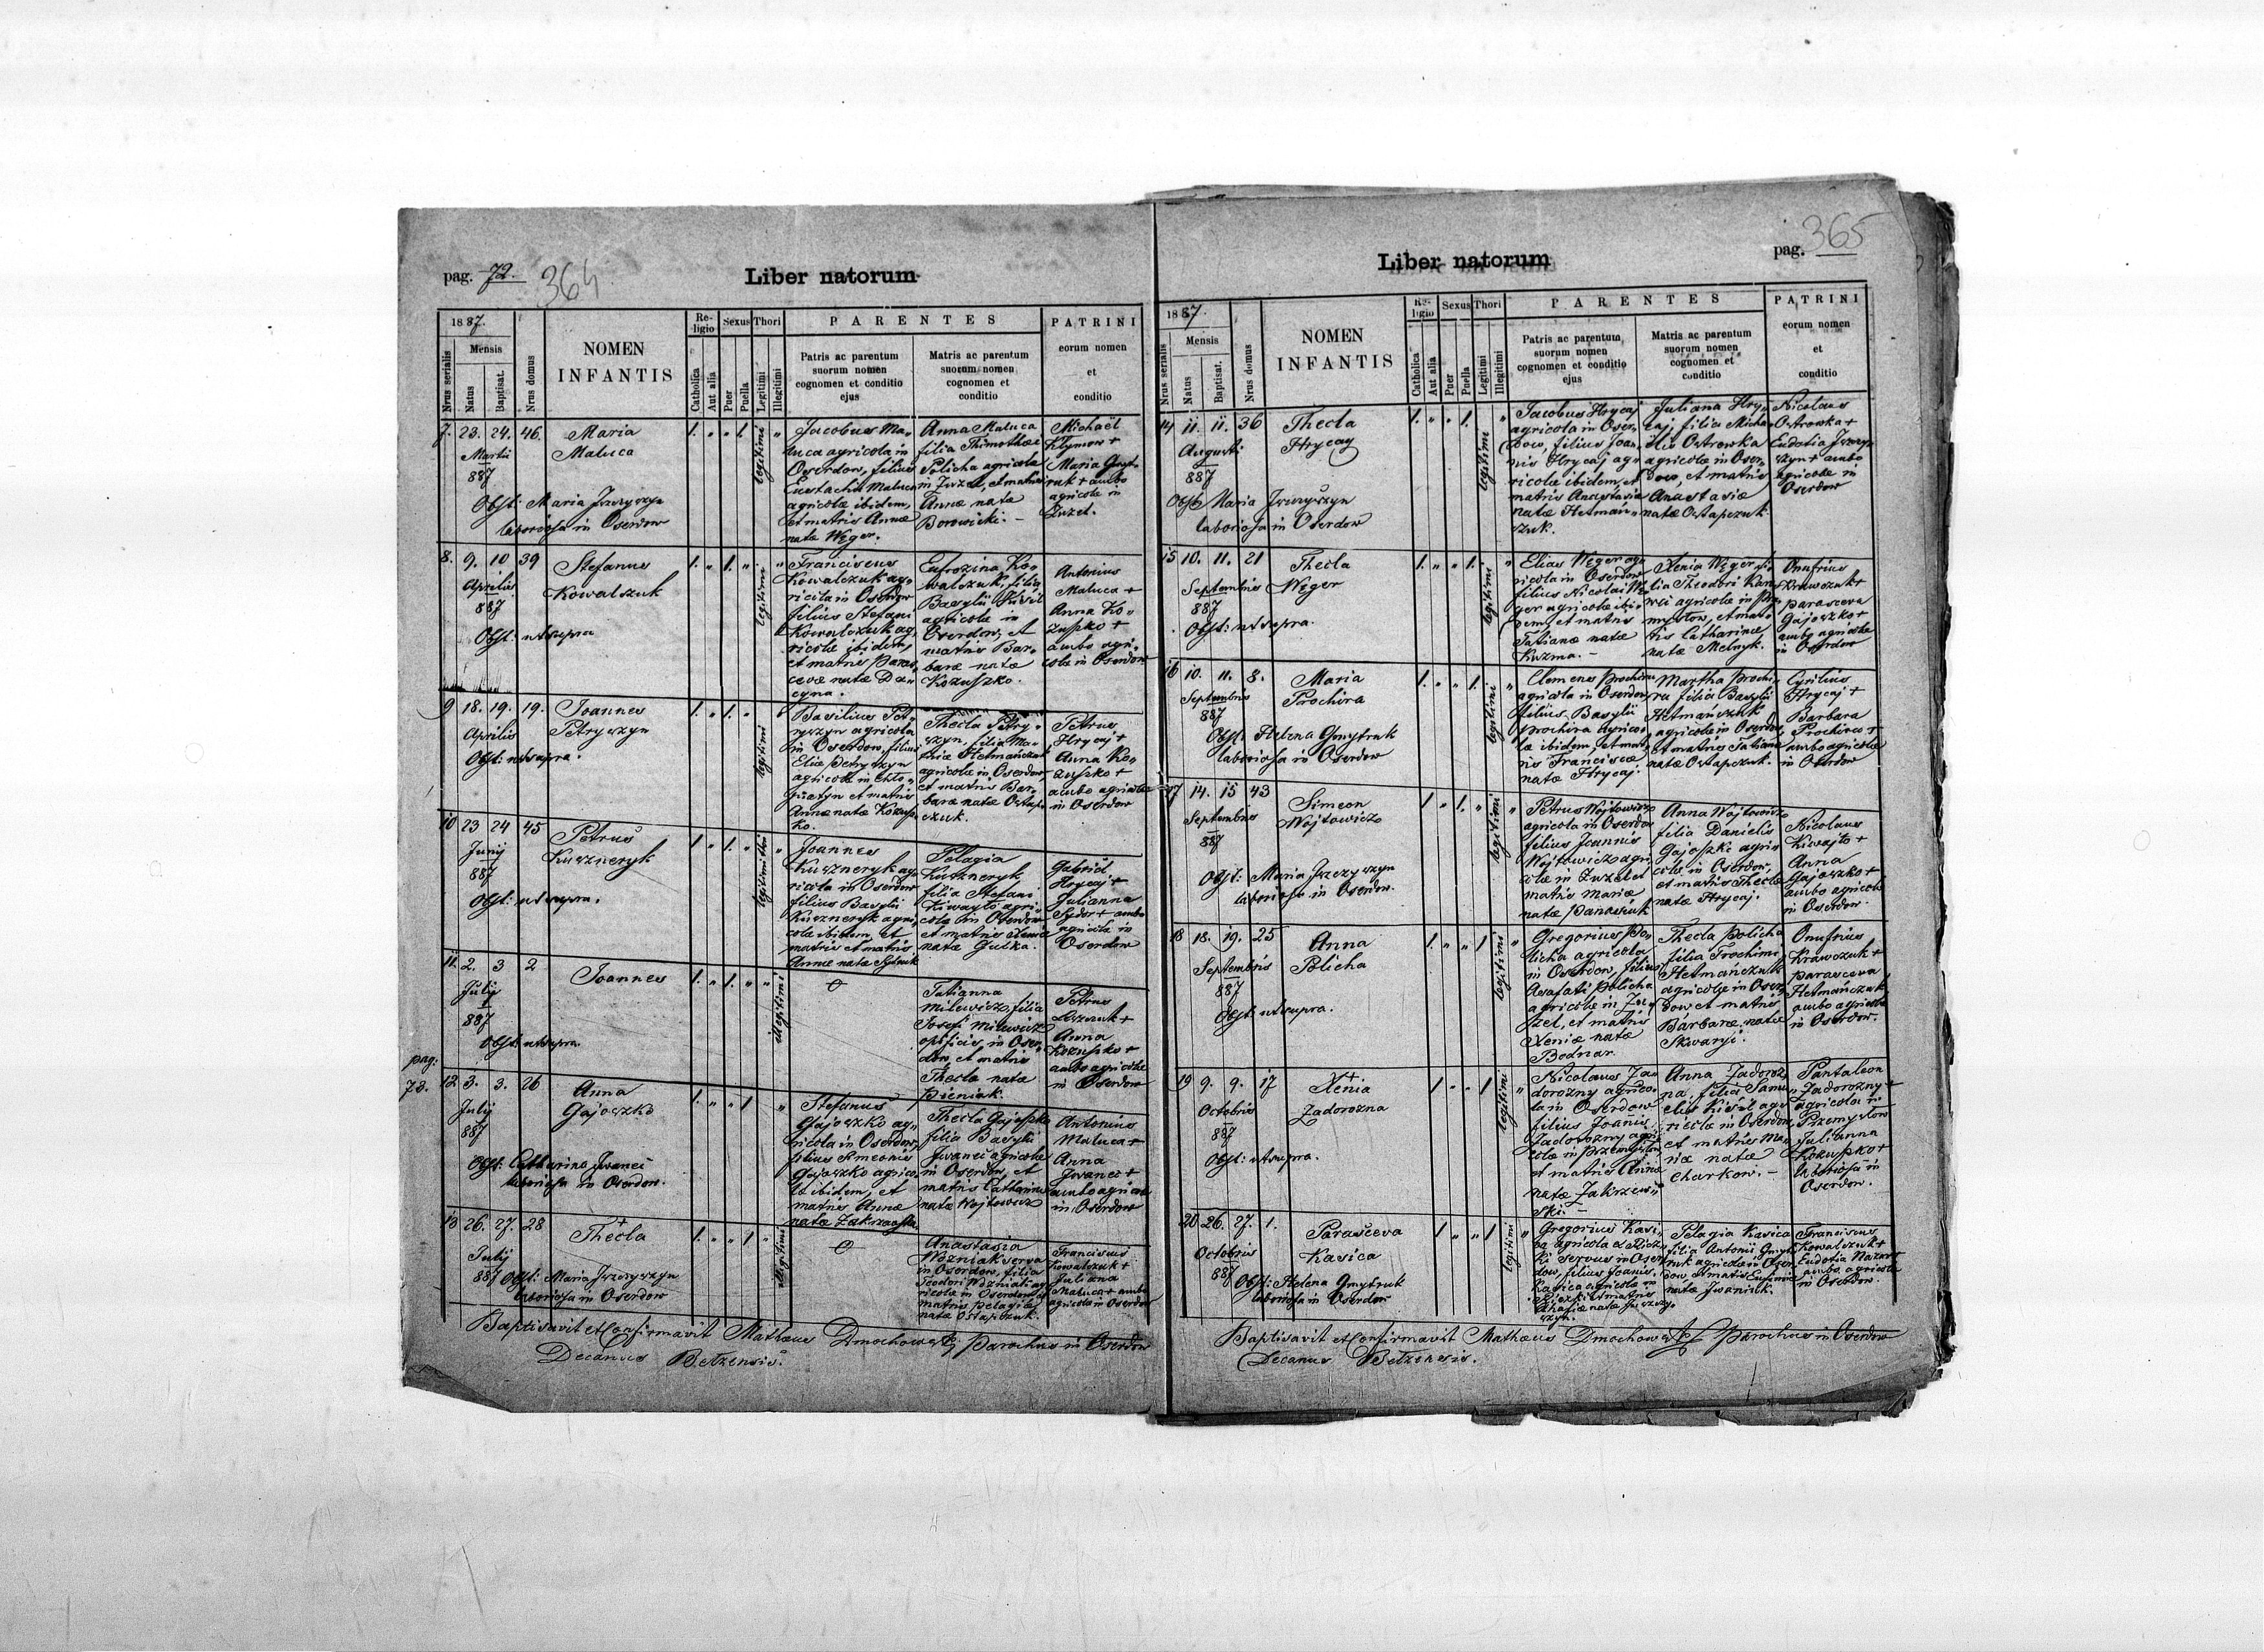 pag. 72.
364
Liber natorum
1887.
Nrus serialis
Mensis
Natus
Baptisat.
Nrus domus
NOMEN
INFANTIS
Re-
ligio
Catholica
Aut alia
Sexus
Puer
Puella
Thori
Legitimi
Illegitimi
PARENTES
Patris ac parentum
suorum nomen
cognomen et conditio
ejus
Matris ac parentum
suorum nomen
cognomen et
conditio
PATRINI
eorum nomen
et
conditio
7. 23. 24. 46.
Martii
887
Maria
Maluca
Obst: Maria Jrzyszyn
laboriosa in Oserdow
1. " " 1. legitimi "
Jacobus Ma-
luca agricola in
Oserdow, filius
Eustachii Maluca
agricolæ ibidem,
et matris Annæ
natæ Węger.
Anna Maluca
filia Thimothæi
Policha agricolæ
in Żużel, et matris
Annæ natæ
Borowicki. -
Michaël
Klymow +
Maria Gmyt-
ruk + ambo
agricolæ in
Żużel.
8. 9. 10 39
Aprilis
887
Stefanus
Kowalczuk
Obst: ut supra
1. " 1. " legitimi "
Franciscus
Kowalczuk ag-
ricola in Oserdow
filius Stefani
Kowalczuk ag-
ricolæ ibidem,
et matris Paras-
cevæ natæ
Eufrozina Ko-
walczuk, filia
Basylii
agricolæ in
Oserdow, et
matris Bar-
baræ natæ
Kozuszko.
Antonius
Maluca +
Anna Ko-
zuszko +
ambo agri-
colæ in Oserdow
9 18. 19. 19.
Aprilis
Joannes
Petryszyn
Obst: ut supra.
1. " 1. " legitimi
Basilius Pet-
ryszyn agricola
in Oserdow, filius
Eliæ Petryszyn
agricolæ in Chło-
piatyn et matris
Annæ natæ Kozusz-
ko.
Thecla Petry-
szyn, filia
Hetmańczuk
agricolæ in Oserdow
et matris Bar-
baræ natæ Ostap-
czuk.
Petrus
Hrycaj +
Anna Ko-
zuszko +
ambo agricolæ
in Oserdow
10 23 24 45
Junij
887
Petrus
Kuszneryk
Obst: ut supra.
1. " 1. " legitimi "
Joannes
Kuszneryk ag-
ricola in Oserdow
filius Basylii
Kuszneryk agri-
colæ ibidem, et
matris et matris
Annæ natæ
Pelagia
Kuszneryk
filia Stefani
Kiwajło agri-
colæ in Oserdow
et matris Xeniæ
natæ Guška.
Gabriel
Hrycaj +
Julianna
Sydor + ambo
agricolæ in
Oserdow
11. 2. 3 2
Julij
887
Joannes
Obst: ut supra.
1. " 1. " " illegitimi
Tatianna
Milewicz, filia
Josefi Milewicz
opificis in Oser-
dow, et matris
Theclæ natæ
Pieniak.
Petrus
Anna
Kozuszko +
ambo agricolæ
in Oserdow
pag:
73.
12 3. 3. 26
Julij
887
Anna
Gajoszko
Obst: Catharina Jwanci
laboriosa in Oserdow.
1. " " 1 "
Stefanus
Gajoszko ag-
ricola in Oserdow,
filius Simeonis
Gajoszko agrico-
læ ibidem, et
matris Annæ
natæ
Thecla Gajoszko
filia Basylii
Jwanci agricolæ
in Oserdow, et
matris Catharinæ
natæ Wojtowicz
Antonius
Maluca +
Anna
Jwanci +
ambo agricolæ
in Oserdow
13 26. 27. 28
Julij
887
+
Thecla
Obst: Maria Jrzyszyn
laboriosa in Oserdow
1. " " 1 " illegitimi
Anastasia
Wozniak serva
in Oserdow, filia
Teodori Wozniak ag-
ricolæ in Oserdow et
matris Pelagiæ
natæ Ostapczuk.
Franciscus
Kowalczuk +
Juliana
Maluca + ambo
agricolæ in Oserdow
Baptisavit et Confirmavit Mathæus Dmochowski Parochus in Oserdow
Decanus Bełzensis.
pag. 365
Liber natorum
1887.
Nrus serialis
Mensis
Natus
Baptisat.
Nrus domus
NOMEN
INFANTIS
Re-
ligio
Catholica
Aut alia
Sexus
Puer
Puella
Thori
Legitimi
Illegitimi
PARENTES
Patris ac parentum
suorum nomen
cognomen et conditio
ejus
Matris ac parentum
suorum nomen
cognomen et
conditio
PATRINI
eorum nomen
et
conditio
14 11. 11. 36
Augusti
887
Thecla
Hrycaj
Obst: Maria Jrzyszyn
laboriosa in Oserdow
1. " " 1. legitimi "
Jacobus Hrycaj
agricola in Oser-
dow, filius Joan-
nis Hrycaj ag-
ricolæ ibidem, et
matris Anastasiæ
natæ Hetmań-
czuk.
Juliana Hry-
caj, filia Micha-
elis Ostrowka
agricolæ in Oser-
dow, et matris
Anastasiæ
natæ Ostapczuk.
Nicolaus
Ostrowka +
Eudotia
szyn + ambo
agricolæ in
Oserdow
15 10. 11. 21
Septembris
887
Thecla
Węger
Obst: ut supra.
1. " " 1. legitimi "
Elias Węger ag-
ricola in Oserdow
filius Nicolai Wę-
ger agricolæ ibi-
dem, et matris
Tatianæ natæ
Kuzma. -
Xenia Węger fi-
lia Theodori
agricolæ in
mysłow, et mat-
ris Catharinæ
natæ Melnyk.
Onufrius
Krawczuk +
Parasceva
Gajoszko +
ambo agricolæ
in Oserdow
16 10. 11. 8.
Septembris
887
Maria
Prochira
Obst: Helena Gmytruk
laboriosa in Oserdow
1. " " 1. legitimi "
Clemens Prochira
agricola in Oserdow,
filius Basylii
Prochira agrico-
læ ibidem, et mat-
ris Franciscæ
natæ Hrycaj.
Martha Prochi-
ra filia Basylii
Hetmańczuk
agricolæ in Oserdow,
et matris Tatianæ
natæ Ostapczuk.
Cyrilius
Hrycaj +
Barbara
Prochira +
ambo agricolæ
in Oserdow
17 14. 15 43
Septembris
887
Simeon
Wojtowicz
Obst: Maria Jrzyszyn
laboriosa in Oserdow.
1 " 1. " legitimi "
Petrus Wojtowicz
agricola in Oserdow
filius Joannis
Wojtowicz agri-
colæ in Żużel et
matris Mariæ
natæ Panasiuk
Anna Wojtowicz
filia Danielis
Gajoszko agri-
colæ in Oserdow,
et matris Theclæ
natæ Hrycaj.
Nicolaus
Kiwajło +
Anna
Gajoszko +
ambo agricolæ
in Oserdow.
18 18. 19. 25
Septembris
887
Anna
Policha
Obst: ut supra.
1. " " 1 legitimi "
Gregorius Po-
licha agricola
in Oserdow, filius
Asafati Policha
agricolæ in Żu-
żel, et matris
Xeniæ natæ
Bodnar
Thecla Policha
filia Trochimi
Hetmańczuk
agricolæ in Oser-
dow, et matris
Barbaræ natæ
Skwaryi.
Onufrius
Krawczuk +
Parasceva
Hetmańczuk
ambo agricolæ
in Oserdow.
19 9. 9. 17
Octobris
887
+
Xenia
Zadorozna
Obst: ut supra.
1 " " 1 legitimi "
Nicolaus Za-
dorozny agrico-
la in Oserdow
filius Joannis
Zadorozny agri-
colæ in Przemysłow,
et matris Annæ
natæ Zakrzew-
ski. -
Anna Zadoroz-
na, filia Samu-
elis Kisil ag-
ricolæ in Oserdow
et matris Ma-
riæ natæ
Charkow. -
Pantaleon
Zadorozny +
agricola in
Przemysłow
Julianna
Kozuszko +
laboriosa in
Oserdow.
20 26. 27. 1.
Octobris
887
Parasceva
Kasica
Obst: Helena Gmytruk
laboriosa in Oserdow
1 " " 1 legitimi "
Gregorius Kasi-
ca agricola
servus in Oser-
dow, filius Joannis
Kasica agricolæ in
et matris
natæ
szyn.
Pelagia Kasica
filia Antonii Gmyt-
ruk agricolæ in Oser-
dow, et matris Eufimiæ
natæ Jwaniuk.
Franciscus
Kowalczuk +
Eudotia Nazar
ambo agricolæ
in Oserdow.
Baptisavit et Confirmavit Mathæus Dmochowski Parochus in Oserdow
Decanus Bełzensis.